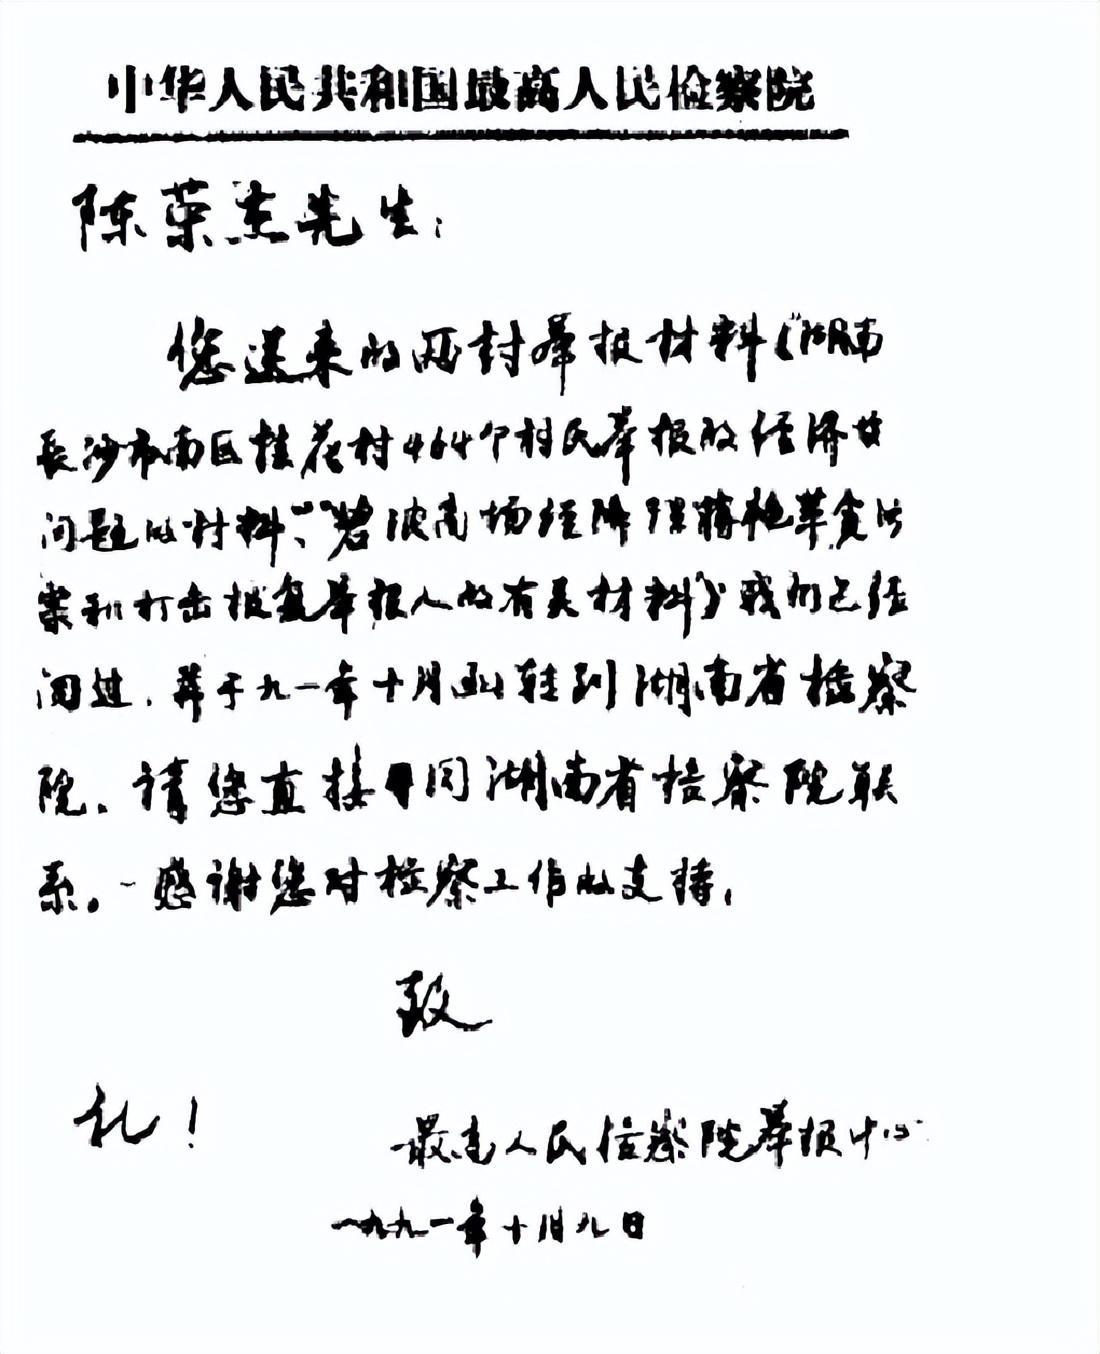 中华人民共和国最高人民检察院
陈荣杰先生：
您送来的两封举报材料（"湖南
长沙市南区桂花村464个村民举报的经济
问题的材料"、"碧波商场经 贪污
案和打击报复举报人的有关材料）我们已经
阅过，并于九一年十月函转到湖南省检察
院。请您直接同湖南省检察院联
系。感谢您对检察工作的支持，
致
礼！
最高人民检察院举报中心
一九九一年十月九日